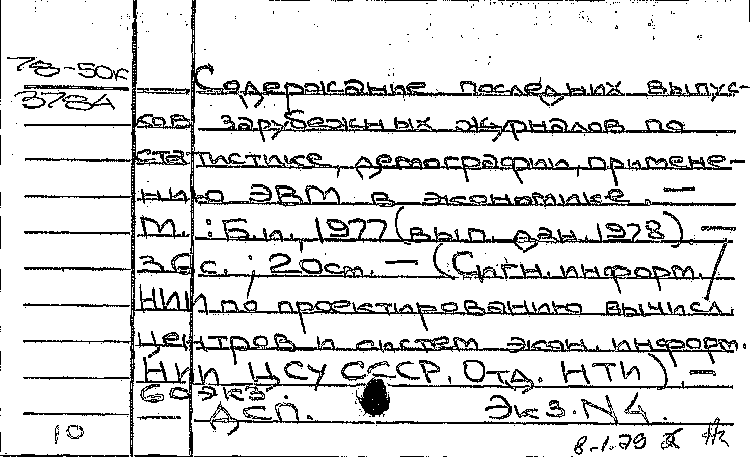 78-50к
378А
Содержание последних выпус-
ков зарубежных журналов по
статистике, демографии, примене-
нию ЭВМ в экономике. —
М. : Б.и., 1977 (вып. дан. 1978). —
36 с. ; 20 см. — (Сигн. информ. /
НИИ по проектированию вычисл.
центров и систем экон. информ.
НИИ ЦСУ СССР. Отд. НТИ). —
60 экз.
— ДСП. Экз. N4.
10
8-1.79